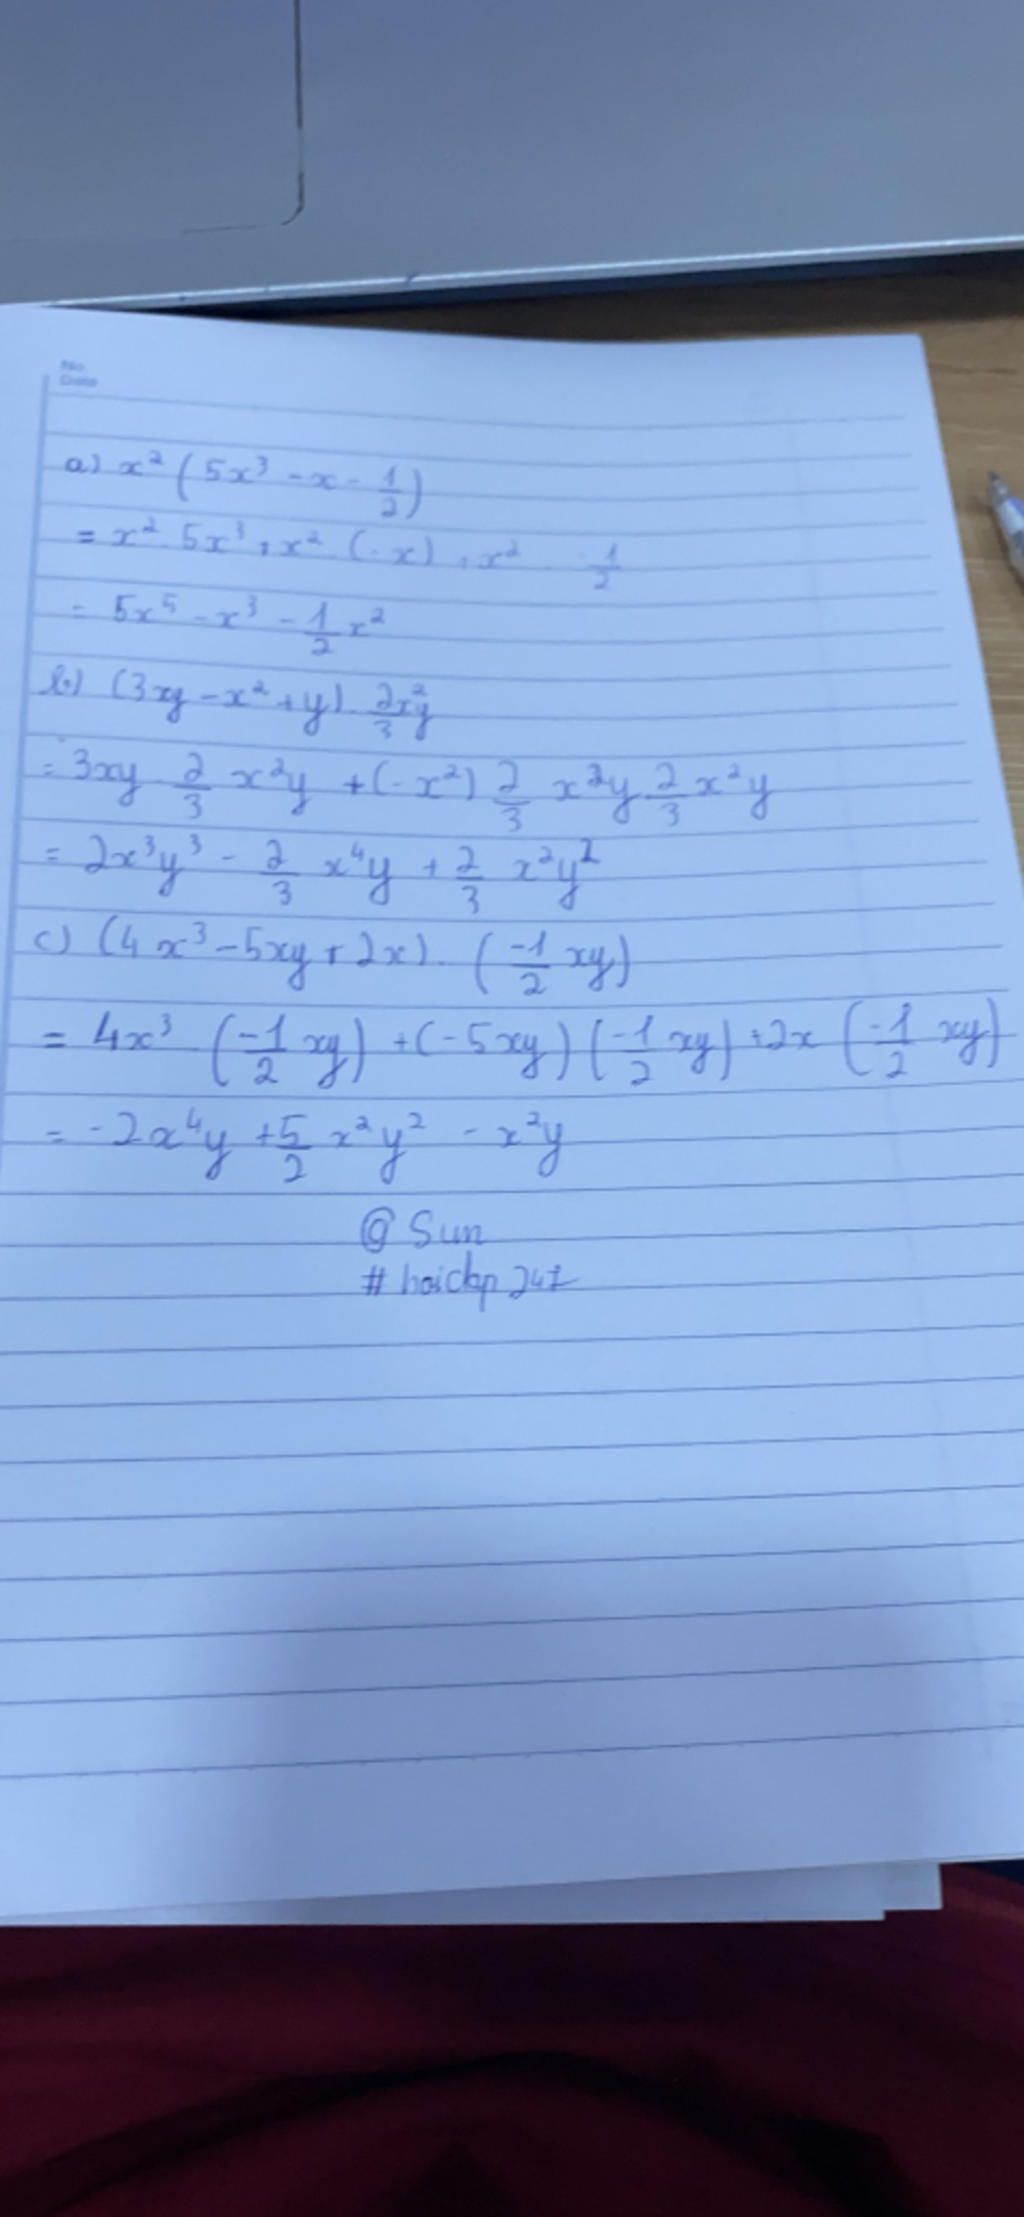 No.
Date
a) x² (5x³ - x - 1/2)
= x² . 5x³ + x² (-x) + x² . -1/2
= 5x⁵ - x³ - 1/2 x²
b) (3xy - x² + y) . 2/3 x²y
= 3xy . 2/3 x²y + (-x²) 2/3 x²y . 2/3 x²y
= 2x³y³ - 2/3 x⁴y + 2/3 x²y²
c) (4x³ - 5xy + 2x) . (-1/2 xy)
= 4x³ . (-1/2 xy) + (-5xy) (-1/2 xy) + 2x (-1/2 xy)
= -2x⁴y + 5/2 x²y² - x²y
@ Sun
# hoidap247